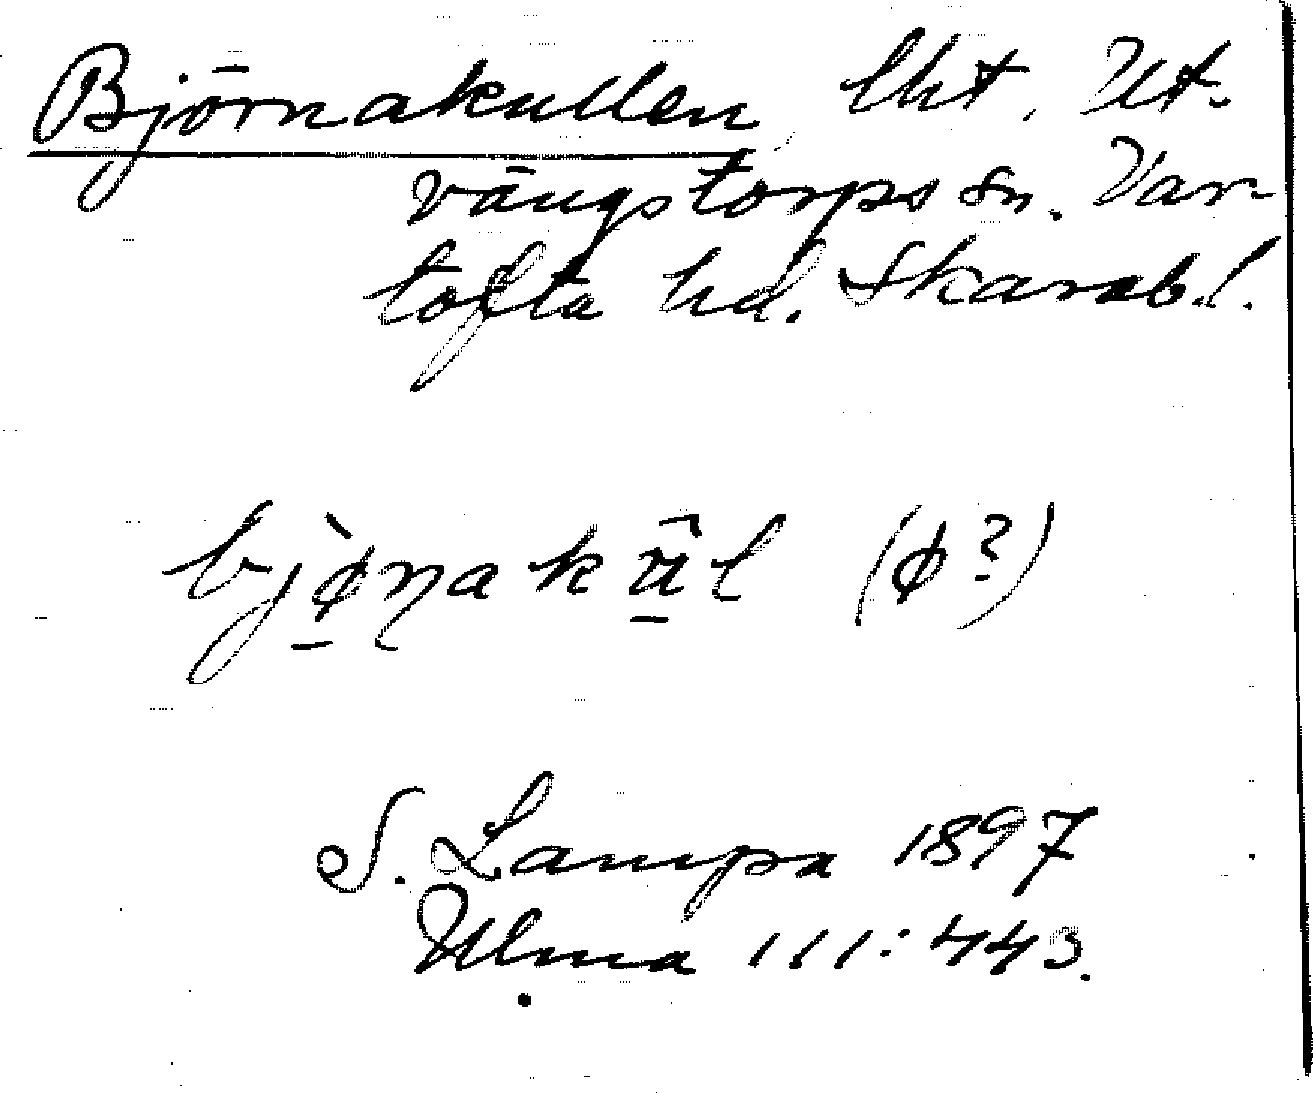 Björnakullen, lht. Ut-
vängstorps sn. Var-
tofta hd. Skarab.l.
bjø̀ṇakul (ø?)
S. Lampa 1897
Ulma 111:443.